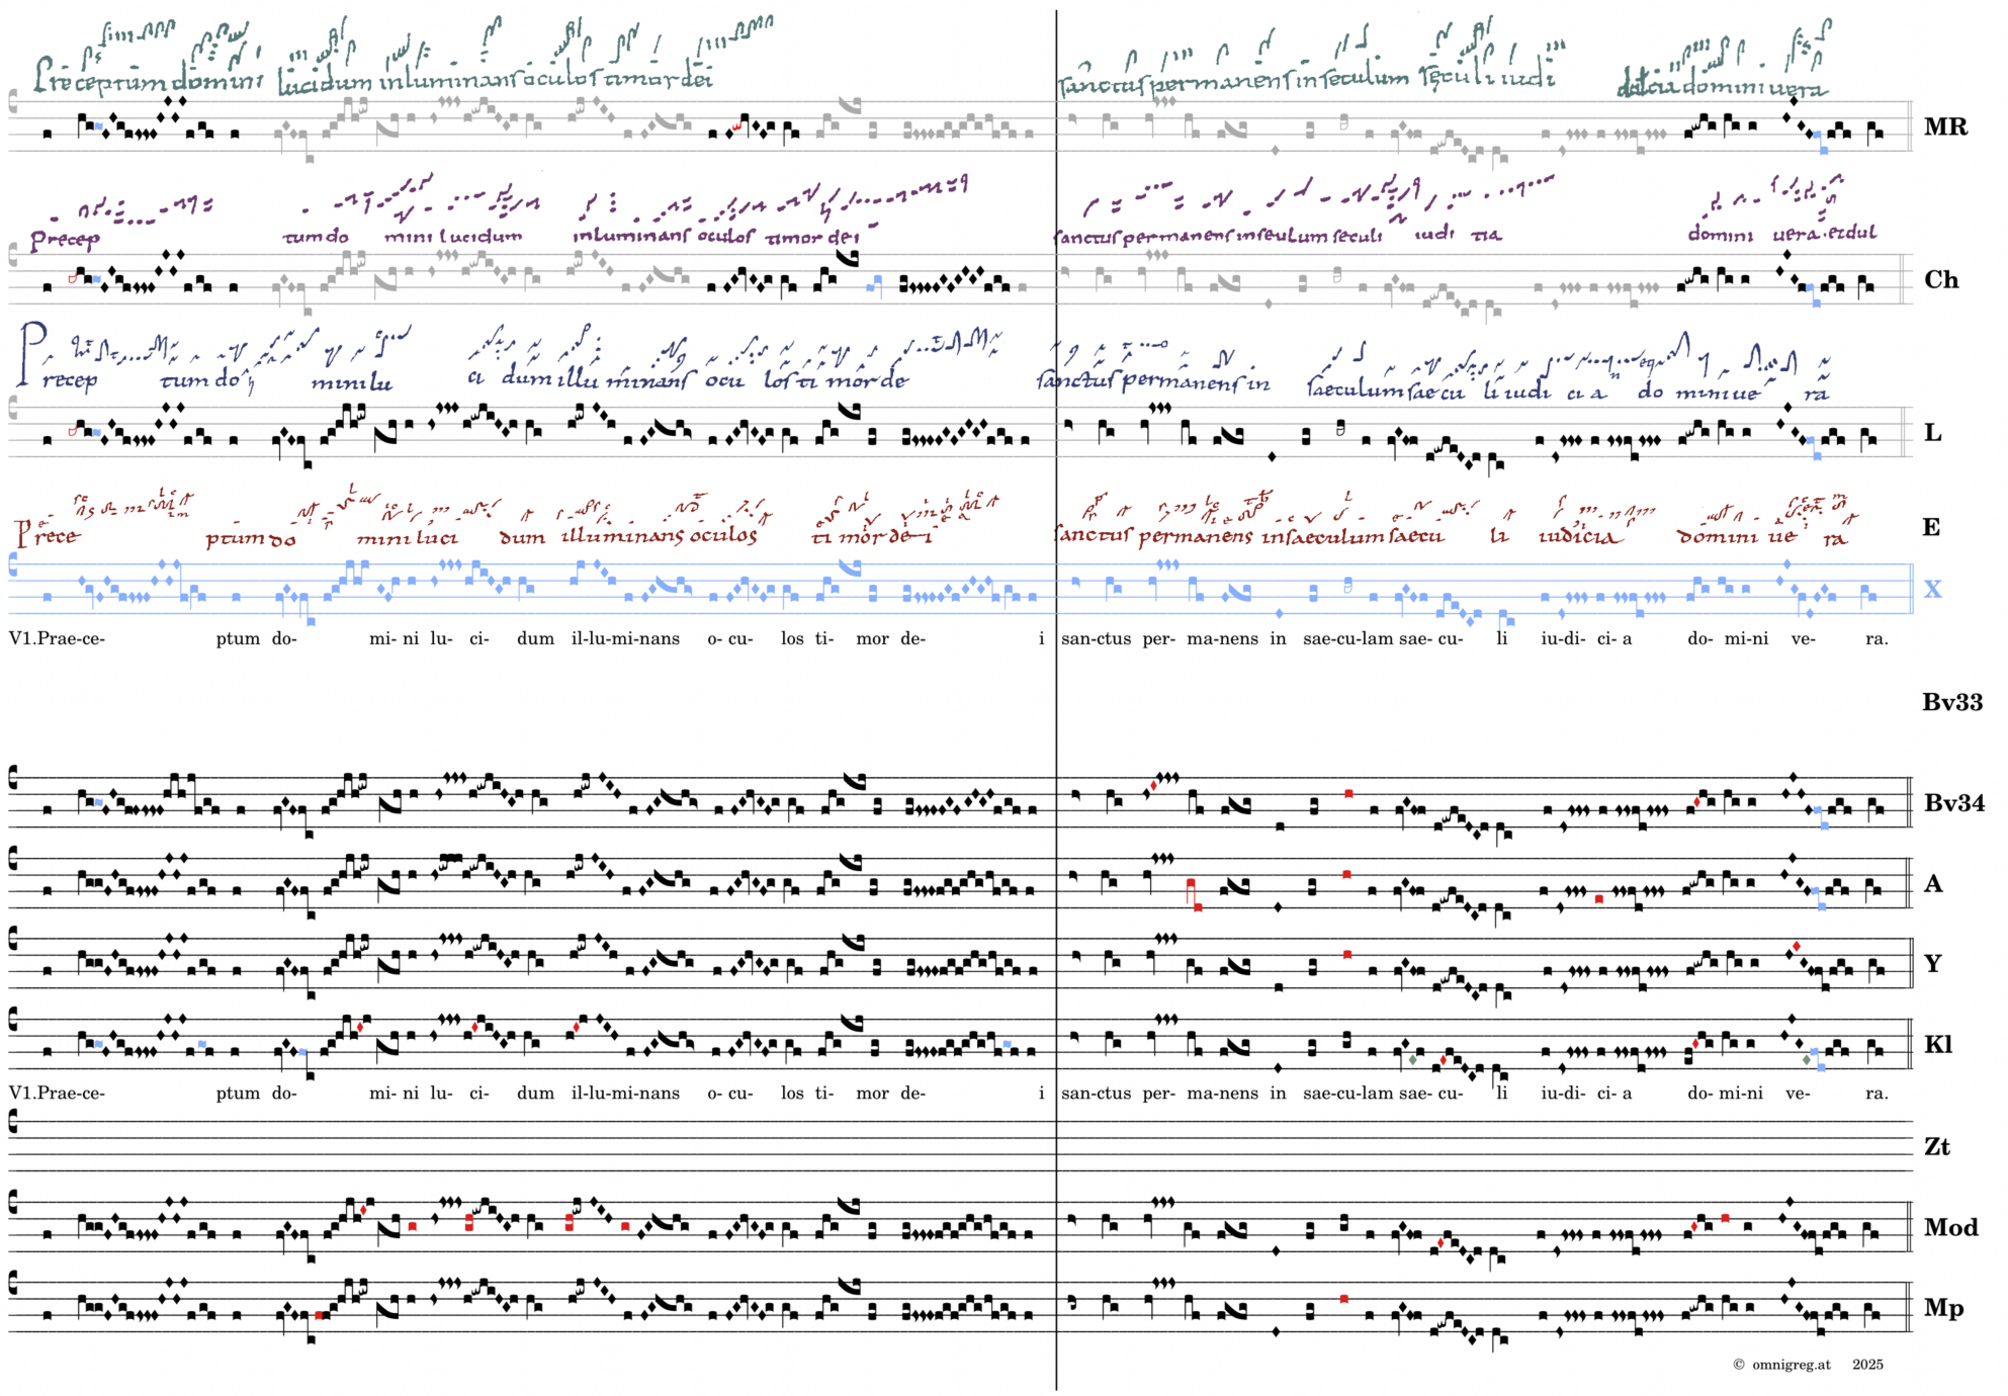 Preceptum domini lucidum inluminans oculos timor dei sanctus permanens in seculum seculi iudi domini uera
MR
Precep tum do mini lucidum inluminans oculos timor dei sanctus permanens in seulum seculi iudi tia domini uera
Ch
Precep tum do mini lu ci dum illu minans ocu los ti mor de sanctus permanens in saeculum saecu li iudi ci a do mini ue ra
L
Prece ptum do mini luci dum illuminans oculos ti mor de i sanctus permanens insaeculum saecu li iudicia domini ue ra
E
X
V1.Prae-ce- ptum do- mi- ni lu- ci- dum il-lu-mi-nans o- cu- los ti- mor de- i san-ctus per- ma-nens in sae-cu-lam sae- cu- li iu-di- ci- a do- mi-ni ve- ra.
Bv33
Bv34
A
Y
Kl
V1.Prae-ce- ptum do- mi- ni lu- ci- dum il-lu-mi-nans o- cu- los ti- mor de- i san-ctus per- ma-nens in sae-cu-lam sae- cu- li iu-di- ci- a do- mi-ni ve- ra.
Zt
Mod
Mp
© omnigreg.at 2025